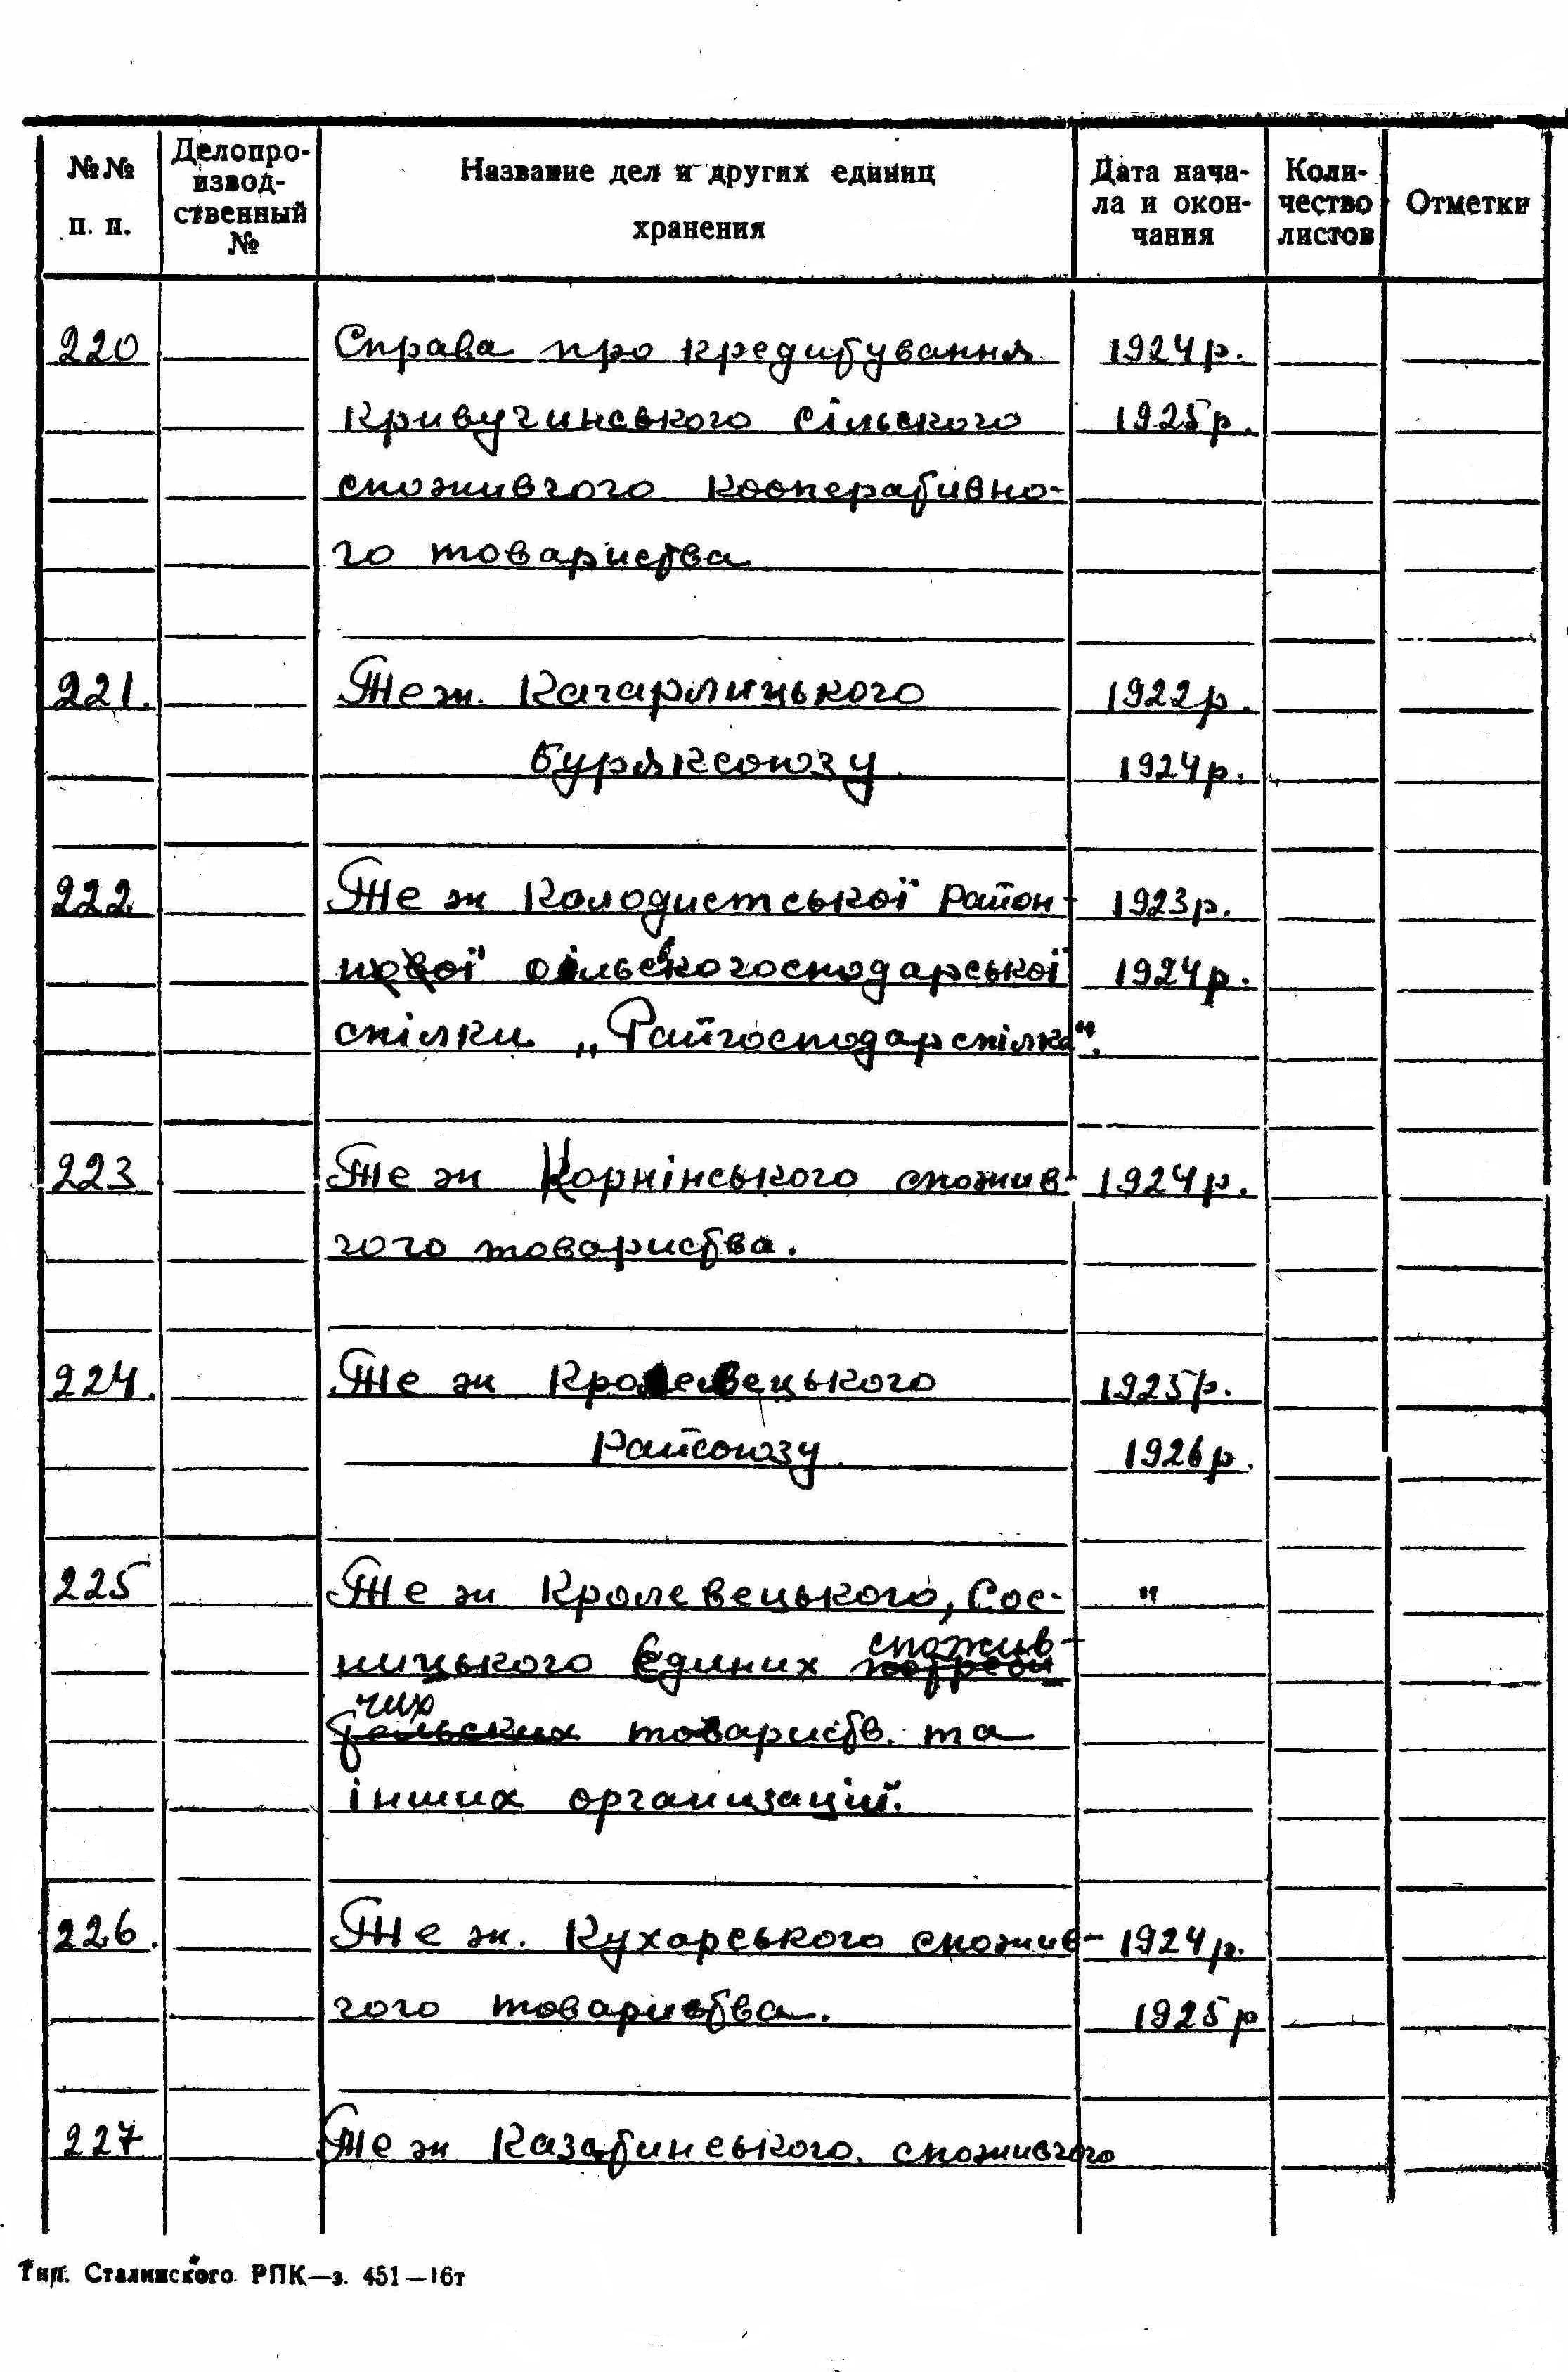 №№ п. п. Делопро-извод-ственный № Название дел и других единиц хранения Дата нача-ла и окон-чания Коли-чество листов Отметки
220 Справа про кредитування 1924 р.
Кривучинського сільского 1925 р.
споживчого кооперативно-
го товариства
221. Те ж. Кагарлицького 1922 р.
буряксоюзу 1924 р.
222 Те ж Колодистської район- 1923 р.
ної сільськогосподарської 1924 р.
спілки „Райгосподарспілка".
223 Те ж Корнінського спожив- 1924 р.
чого товариства.
224. Те ж Кролевецького 1925 р.
Райсоюзу 1926 р.
225 Те ж Кролевецького, Сос- "
ницького Єдиних спожив-
чих товариств. та
інших организацій.
226. Те ж. Кухарського спожив- 1924 р.
чого товариства. 1925 р
227 Те ж Казатинського. споживчого
Тип. Сталинского РПК—з. 451—16т